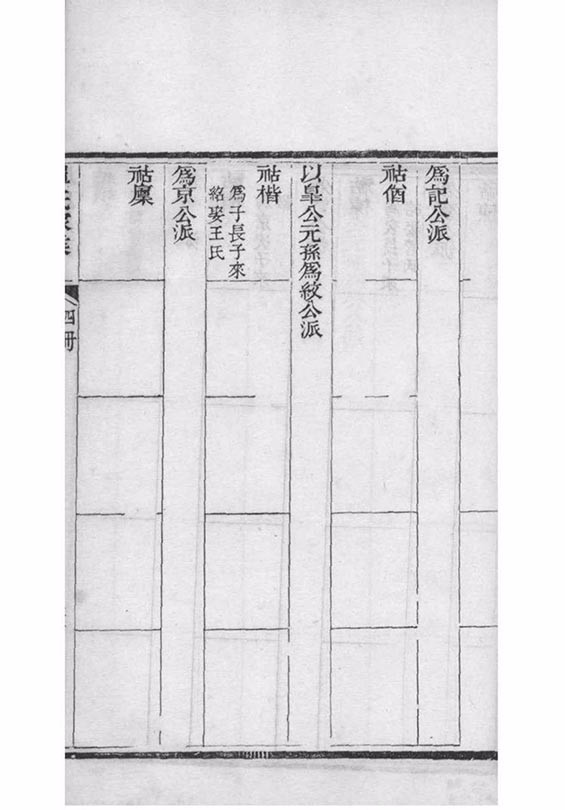 爲記公派
祜偤
以皐公元孫爲紋公派
祜楷
爲子長子來
紹娶王氏
爲京公派
祜稟
四冊